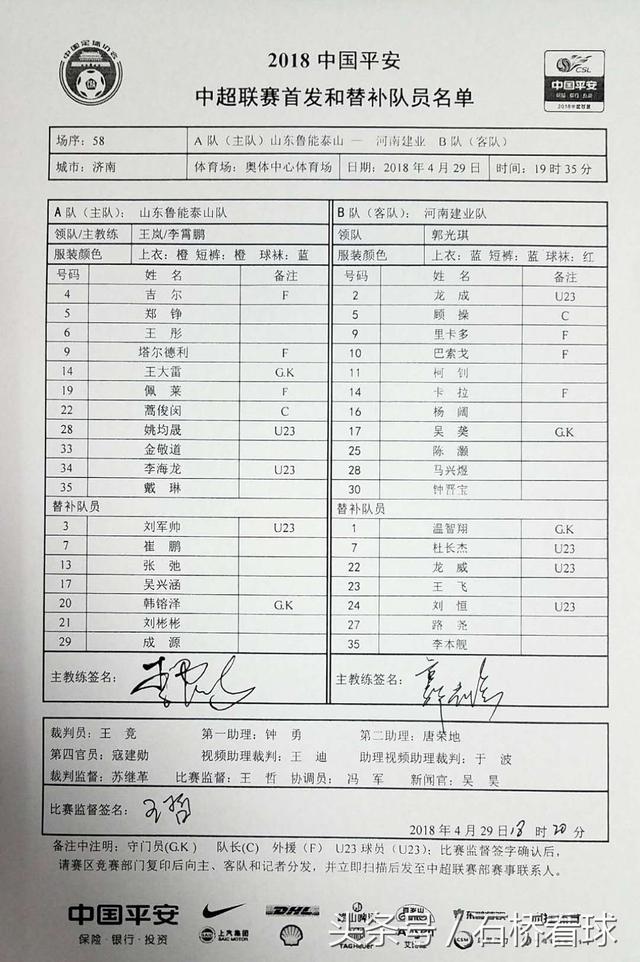 中国足球协会
2018 中国平安
中超联赛首发和替补队员名单
CSL
中国平安
保险·银行·投资
场序：58 A 队（主队）山东鲁能泰山 — 河南建业 B 队（客队）
城市：济南 体育场：奥体中心体育场 日期：2018 年 4 月 29 日 时间：19 时 35 分
A 队（主队）： 山东鲁能泰山队 B 队（客队）： 河南建业队
领队/主教练 王岚/李霄鹏 领队 郭光琪
服装颜色 上衣：橙 短裤：橙 球袜：蓝 服装颜色 上衣：蓝 短裤：蓝 球袜：红
号码 姓 名 备注 号码 姓 名 备注
4 吉 尔 F 2 龙 成 U23
5 郑 铮 5 顾 操 C
6 王 彤 9 里卡多 F
9 塔尔德利 F 10 巴索戈 F
14 王大雷 G.K 11 柯 钊
19 佩 莱 F 14 卡 拉 F
22 蒿俊闵 C 16 杨 阔
28 姚均晟 U23 17 吴 龑 G.K
33 金敬道 25 陈 灏
34 李海龙 U23 28 马兴煜
35 戴 琳 30 钟晋宝
替补队员 替补队员
3 刘军帅 U23 1 温智翔 G.K
7 崔 鹏 7 杜长杰 U23
13 张 弛 22 龙 威 U23
17 吴兴涵 23 王 飞
20 韩镕泽 G.K 24 刘 恒 U23
21 刘彬彬 27 路 尧
29 成 源 35 李本舰
主教练签名： 主教练签名：
裁判员：王 竞 第一助理：钟 勇 第二助理：唐荣地
第四官员：寇建勋 视频助理裁判：王 迪 助理视频助理裁判：于 波
裁判监督：苏继革 比赛监督：王 哲 协调员：冯 军 新闻官：吴 昊
比赛监督签名：王哲
2018 年 4 月 29 日 18 时 20 分
备注中注明：守门员(G.K) 队长(C) 外援（F） U23 球员（U23）；比赛监督签字确认后，
请赛区竞赛部门复印后向主、客队和记者分发，并立即扫描后发至中超联赛部赛事联系人。
中国平安
保险·银行·投资
上汽集团
SAIC MOTOR
DHL
TAGHeuer
头条号 / 石桥看球